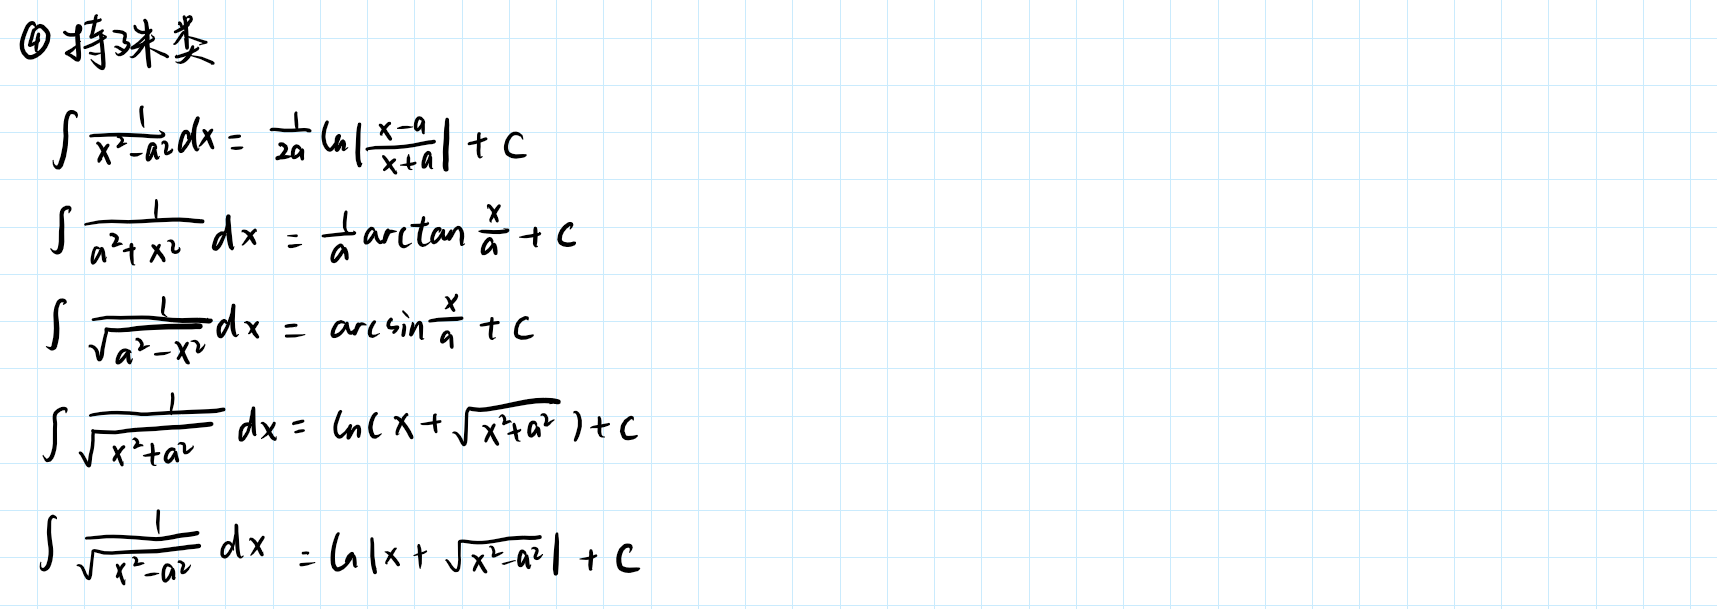 ④ 特殊类
∫ 1/(x²-a²) dx = 1/(2a) ln|(x-a)/(x+a)| + C
∫ 1/(a²+x²) dx = 1/a arctan x/a + C
∫ 1/√(a²-x²) dx = arcsin x/a + C
∫ 1/√(x²+a²) dx = ln(x+√(x²+a²)) + C
∫ 1/√(x²-a²) dx = ln|x+√(x²-a²)| + C